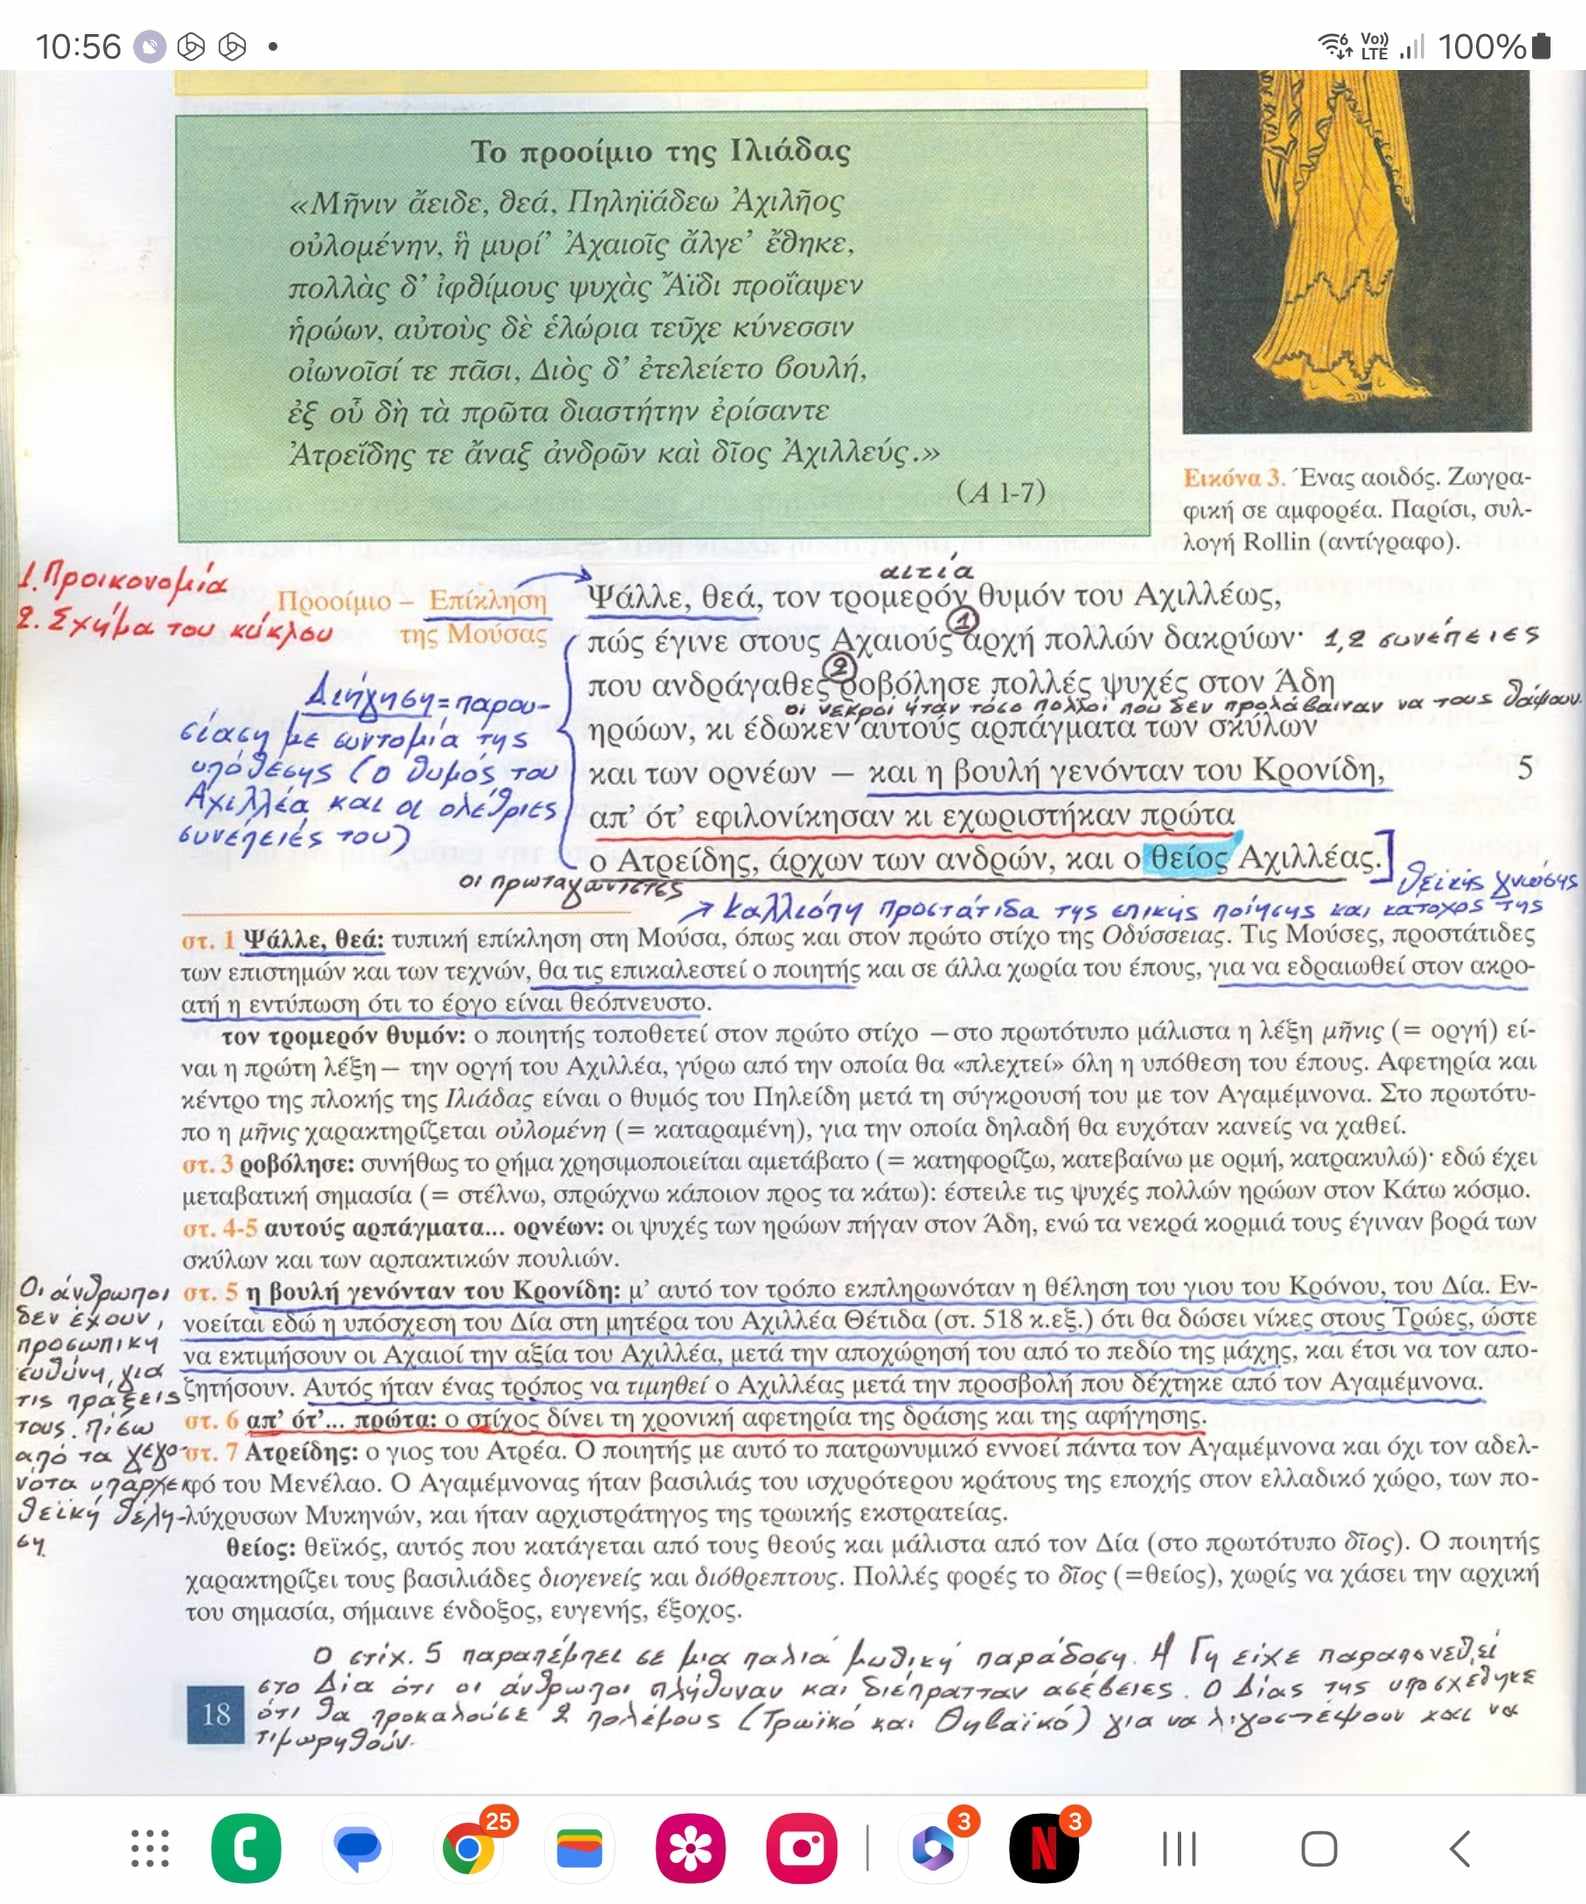 10:56
Vo)) LTE 100%
Το προοίμιο της Ιλιάδας
«Μῆνιν ἄειδε, θεά, Πηληϊάδεω Ἀχιλῆος
οὐλομένην, ἣ μυρί’ Ἀχαιοῖς ἄλγε’ ἔθηκε,
πολλὰς δ’ ἰφθίμους ψυχὰς Ἄϊδι προΐαψεν
ἡρώων, αὐτοὺς δὲ ἑλώρια τεῦχε κύνεσσιν
οἰωνοῖσί τε πᾶσι, Διὸς δ’ ἐτελείετο βουλή,
ἐξ οὗ δὴ τὰ πρῶτα διαστήτην ἐρίσαντε
Ἀτρεΐδης τε ἄναξ ἀνδρῶν καὶ δῖος Ἀχιλλεύς.»
(Α 1-7)
Εικόνα 3. Ένας αοιδός. Ζωγρα-
φική σε αμφορέα. Παρίσι, συλ-
λογή Rollin (αντίγραφο).
1. Προικονομία
2. Σχήμα του κύκλου
Προοίμιο – Επίκληση
της Μούσας
Διήγηση = παρου-
σίαση με συντομία της
υπόθεσης (ο θυμός του
Αχιλλέα και οι ολέθριες
συνέπειές του)
αιτία
Ψάλλε, θεά, τον τρομερόν θυμόν του Αχιλλέως,
1
πώς έγινε στους Αχαιούς αρχή πολλών δακρύων· 1,2 συνέπειες
2
που ανδράγαθες ροβόλησε πολλές ψυχές στον Άδη
οι νεκροί ήταν τόσο πολλοί που δεν προλάβαιναν να τους θάψουν
ηρώων, κι έδωκεν αυτούς αρπάγματα των σκύλων
και των ορνέων — και η βουλή γενόνταν του Κρονίδη, 5
απ’ ότ’ εφιλονίκησαν κι εχωριστήκαν πρώτα
ο Ατρείδης, άρχων των ανδρών, και ο θείος Αχιλλέας.
οι πρωταγωνιστές
θεϊκής γνώσης
→ Καλλιόπη προστάτιδα της επικής ποίησης και κάτοχος της
στ. 1 Ψάλλε, θεά: τυπική επίκληση στη Μούσα, όπως και στον πρώτο στίχο της Οδύσσειας. Τις Μούσες, προστάτιδες
των επιστημών και των τεχνών, θα τις επικαλεστεί ο ποιητής και σε άλλα χωρία του έπους, για να εδραιωθεί στον ακρο-
ατή η εντύπωση ότι το έργο είναι θεόπνευστο.
τον τρομερόν θυμόν: ο ποιητής τοποθετεί στον πρώτο στίχο —στο πρωτότυπο μάλιστα η λέξη μῆνις (= οργή) εί-
ναι η πρώτη λέξη— την οργή του Αχιλλέα, γύρω από την οποία θα «πλεχτεί» όλη η υπόθεση του έπους. Αφετηρία και
κέντρο της πλοκής της Ιλιάδας είναι ο θυμός του Πηλείδη μετά τη σύγκρουσή του με τον Αγαμέμνονα. Στο πρωτότυ-
πο η μῆνις χαρακτηρίζεται οὐλομένη (= καταραμένη), για την οποία δηλαδή θα ευχόταν κανείς να χαθεί.
στ. 3 ροβόλησε: συνήθως το ρήμα χρησιμοποιείται αμετάβατο (= κατηφορίζω, κατεβαίνω με ορμή, κατρακυλώ)· εδώ έχει
μεταβατική σημασία (= στέλνω, σπρώχνω κάποιον προς τα κάτω): έστειλε τις ψυχές πολλών ηρώων στον Κάτω κόσμο.
στ. 4-5 αυτούς αρπάγματα... ορνέων: οι ψυχές των ηρώων πήγαν στον Άδη, ενώ τα νεκρά κορμιά τους έγιναν βορά των
σκύλων και των αρπακτικών πουλιών.
στ. 5 η βουλή γενόνταν του Κρονίδη: μ’ αυτό τον τρόπο εκπληρωνόταν η θέληση του γιου του Κρόνου, του Δία. Εν-
νοείται εδώ η υπόσχεση του Δία στη μητέρα του Αχιλλέα Θέτιδα (στ. 518 κ.εξ.) ότι θα δώσει νίκες στους Τρώες, ώστε
να εκτιμήσουν οι Αχαιοί την αξία του Αχιλλέα, μετά την αποχώρησή του από το πεδίο της μάχης, και έτσι να τον απο-
ζητήσουν. Αυτός ήταν ένας τρόπος να τιμηθεί ο Αχιλλέας μετά την προσβολή που δέχτηκε από τον Αγαμέμνονα.
στ. 6 απ’ ότ’... πρώτα: ο στίχος δίνει τη χρονική αφετηρία της δράσης και της αφήγησης.
στ. 7 Ατρείδης: ο γιος του Ατρέα. Ο ποιητής με αυτό το πατρωνυμικό εννοεί πάντα τον Αγαμέμνονα και όχι τον αδελ-
φό του Μενέλαο. Ο Αγαμέμνονας ήταν βασιλιάς του ισχυρότερου κράτους της εποχής στον ελλαδικό χώρο, των πο-
λύχρυσων Μυκηνών, και ήταν αρχιστράτηγος της τρωικής εκστρατείας.
θείος: θεϊκός, αυτός που κατάγεται από τους θεούς και μάλιστα από τον Δία (στο πρωτότυπο δῖος). Ο ποιητής
χαρακτηρίζει τους βασιλιάδες διογενείς και διόθρεπτους. Πολλές φορές το δῖος (=θείος), χωρίς να χάσει την αρχική
του σημασία, σήμαινε ένδοξος, ευγενής, έξοχος.
Οι άνθρωποι
δεν έχουν
προσωπική
ευθύνη για
τις πράξεις
τους. Πίσω
από τα γεγο-
νότα υπάρχει
θεϊκή θέλη-
ση.
Ο στίχ. 5 παραπέμπει σε μια παλιά μυθική παράδοση. Η Γη είχε παραπονεθεί
στο Δία ότι οι άνθρωποι πλήθυναν και διέπρατταν ασέβειες. Ο Δίας της υποσχέθηκε
ότι θα προκαλούσε 2 πολέμους (Τρωϊκό και Θηβαϊκό) για να λιγοστέψουν και να
τιμωρηθούν.
18
25
3
3
N